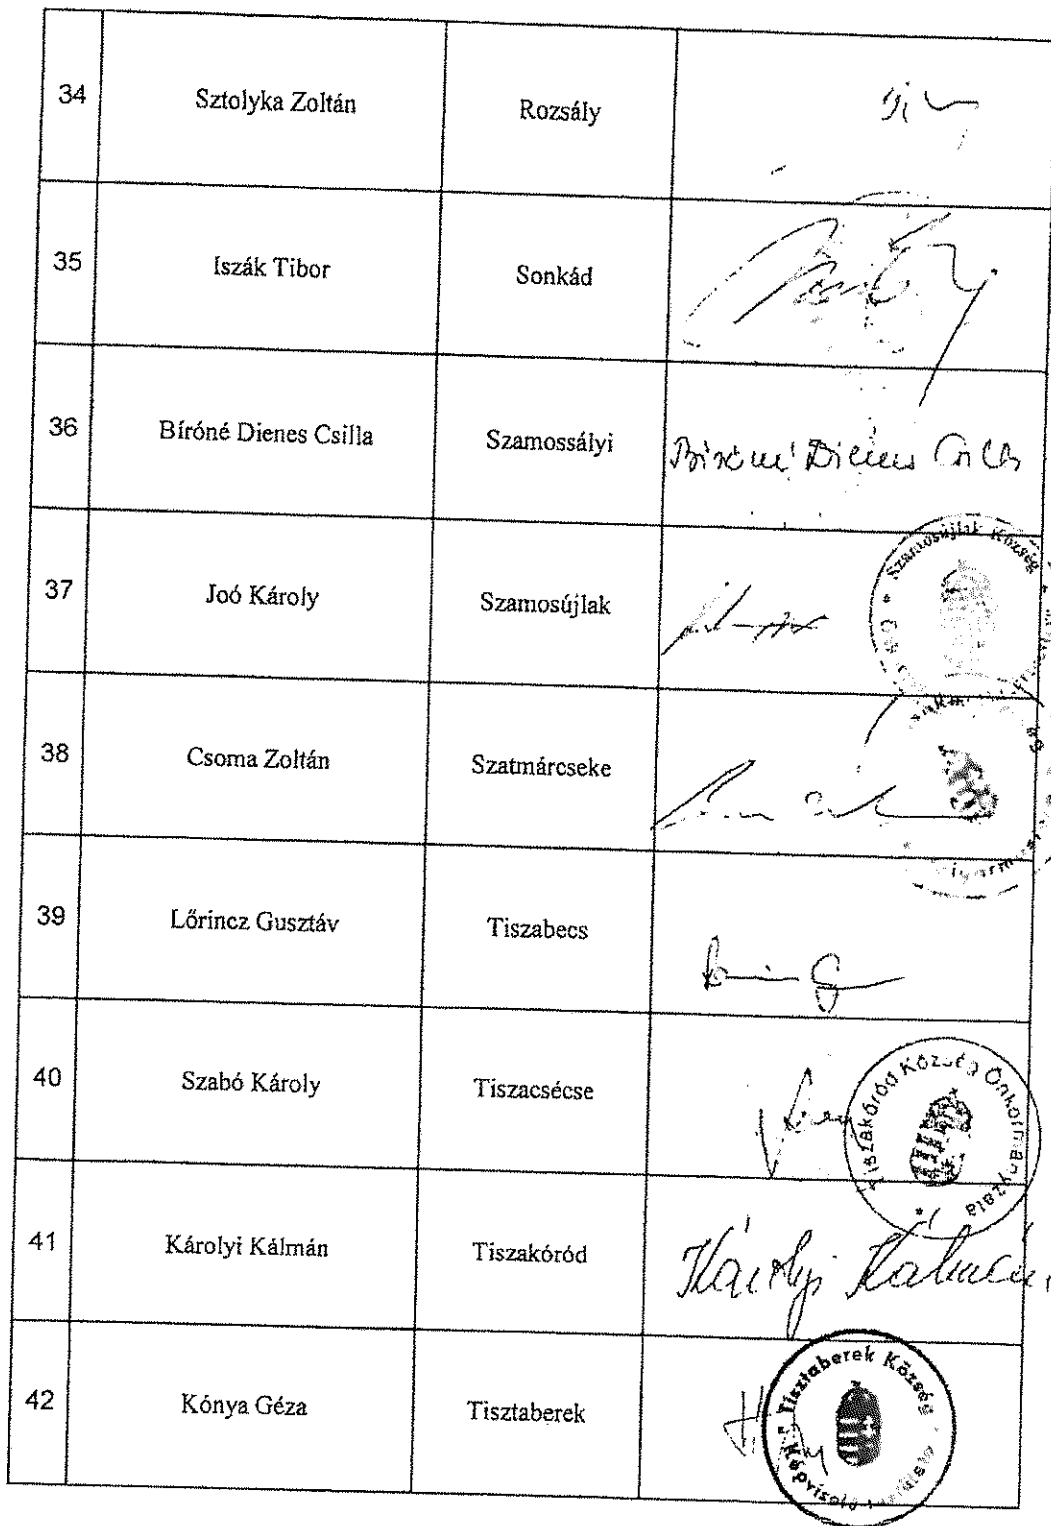 34 Sztolyka Zoltán Rozsály
35 Iszák Tibor Sonkád
36 Bíróné Dienes Csilla Szamossályi Bíróné Dienes Csilla
37 Joó Károly Szamosújlak
Szamosújlak Község
38 Csoma Zoltán Szatmárcseke
39 Lőrincz Gusztáv Tiszabecs
40 Szabó Károly Tiszacsécse
Tiszakóród Község Önkormányzata
41 Károlyi Kálmán Tiszakóród Károlyi Kálmán
42 Kónya Géza Tisztaberek
Tisztaberek Község